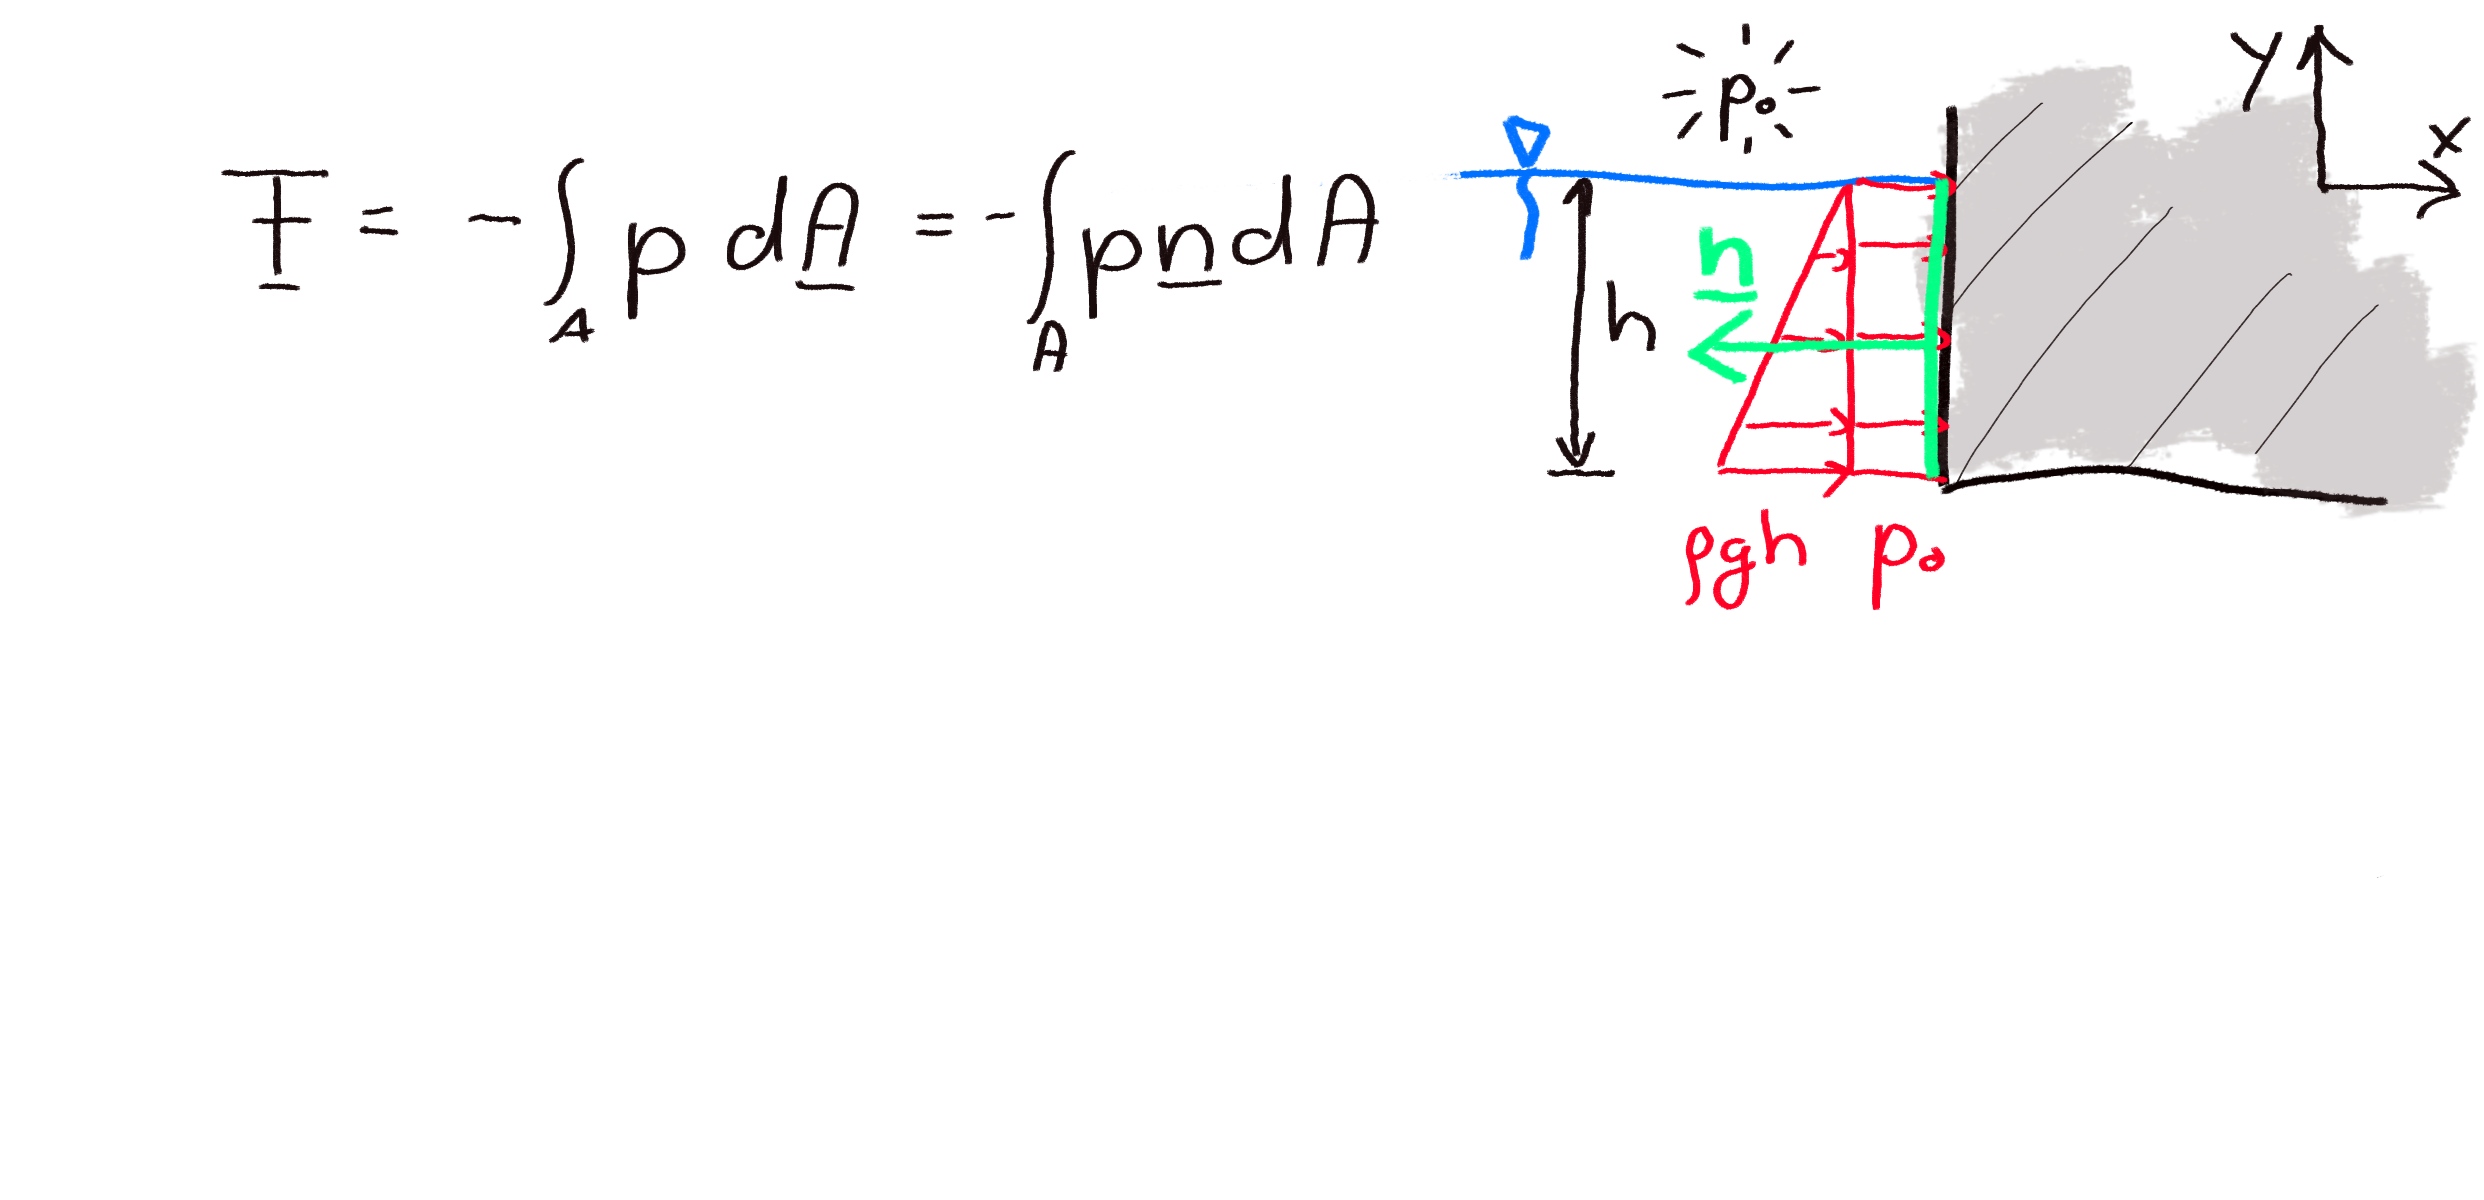 F = - ∫_A p dA = - ∫_A p n dA
p₀
y
x
n
h
ρgh p₀